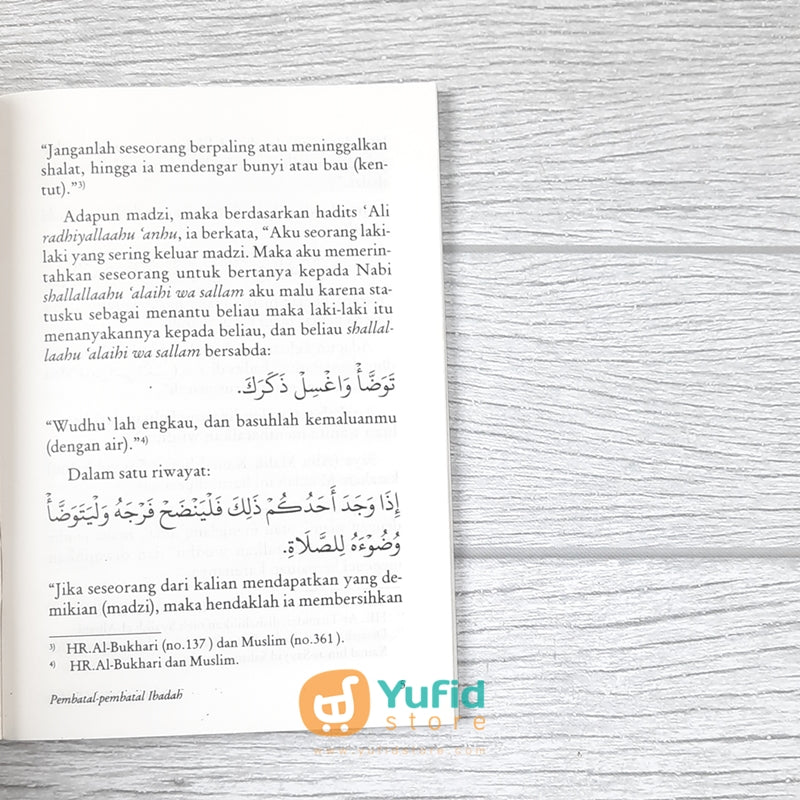 “Janganlah seseorang berpaling atau meninggalkan
shalat, hingga ia mendengar bunyi atau bau (ken-
tut).”3)
Adapun madzi, maka berdasarkan hadits ‘Ali
radhiyallaahu ‘anhu, ia berkata, “Aku seorang laki-
laki yang sering keluar madzi. Maka aku memerin-
tahkan seseorang untuk bertanya kepada Nabi
shallallaahu ‘alaihi wa sallam aku malu karena sta-
tusku sebagai menantu beliau maka laki-laki itu
menanyakannya kepada beliau, dan beliau shallal-
laahu ‘alaihi wa sallam bersabda:
تَوَضَّأْ وَاغْسِلْ ذَكَرَكَ.
“Wudhu`lah engkau, dan basuhlah kemaluanmu
(dengan air).”4)
Dalam satu riwayat:
إِذَا وَجَدَ أَحَدُكُمْ ذَلِكَ فَلْيَنْضَحْ فَرْجَهُ وَلْيَتَوَضَّأْ
وُضُوْءَهُ لِلصَّلَاةِ.
“Jika seseorang dari kalian mendapatkan yang de-
mikian (madzi), maka hendaklah ia membersihkan
3) HR.Al-Bukhari (no.137 ) dan Muslim (no.361 ).
4) HR.Al-Bukhari dan Muslim.
Pembatal-pembatal Ibadah
Yufid
store
www.yufidstore.com